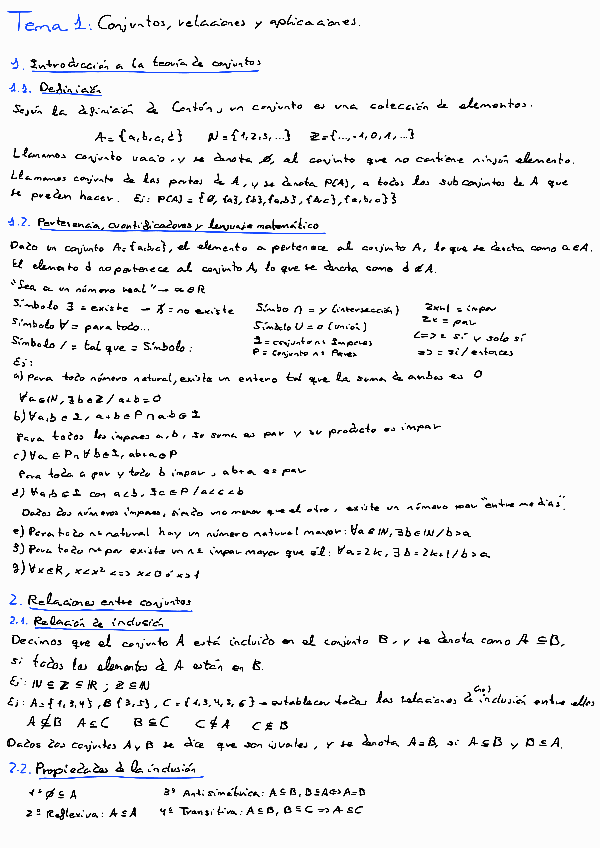 Tema 1: Conjuntos, relaciones y aplicaciones.
1. Introducción a la teoría de conjuntos
1.1. Definición
Según la definición de Cantor, un conjunto es una colección de elementos.
A = {a,b,c,d} N = {1,2,3,...} Z = {...,-1,0,1,...}
Llamamos conjunto vacío, y se denota ∅, al conjunto que no contiene ningún elemento.
Llamamos conjunto de las partes de A, y se denota P(A), a todos los subconjuntos de A que
se pueden hacer. Ej: P(A) = {∅, {a}, {b}, {a,b}, {a,b,c}}
1.2. Pertenencia, cuantificadores y lenguaje matemático
Dado un conjunto A={a,b,c}, el elemento a pertenece al conjunto A, lo que se denota como a∈A.
El elemento d no pertenece al conjunto A, lo que se denota como d∉A.
"Sea a un número real" → a∈R
Símbolo ∃ = existe → ∄ = no existe Símbolo ∩ = y (intersección) 2k+1 = impar
Símbolo ∀ = para todo... Símbolo U = o (unión) 2k = par
Símbolo / = tal que = Símbolo : I = conjunto nº Impares <=> = sí y solo sí
P = Conjunto nº Pares => = si/entonces
Ej:
a) Para todo número natural, existe un entero tal que la suma de ambos es 0
∀a∈N, ∃b∈Z / a+b=0
b) ∀a,b∈I, a+b∈P ∩ a·b∈I
Para todos los impares a,b, su suma es par y su producto es impar
c) ∀a∈P ∩ ∀b∈I, ab+a∈P
Para todo a par y todo b impar, ab+a es par
d) ∀a,b∈I con a<b, ∃c∈P / a<c<b
Dados dos números impares, siendo uno menor que el otro, existe un número par "entre medias".
e) Para todo nº natural hay un número natural mayor: ∀a∈N, ∃b∈N / b>a
f) Para todo nº par existe un nº impar mayor que él: ∀a=2k, ∃b=2k+1 / b>a
g) ∀x∈R, x<x² <=> x<0 ó x>1
2. Relaciones entre conjuntos
2.1. Relación de inclusión
Decimos que el conjunto A está incluido en el conjunto B, y se denota como A⊆B,
si todos los elementos de A están en B.
Ej: N⊆Z⊆R ; Z⊆N
Ej: A={1,3,4}, B{3,5}, C={1,3,4,5,6} → establecer todas las relaciones de (no) inclusión entre ellos
A⊈B A⊆C B⊆C C⊈A C⊈B
Dados dos conjuntos A y B se dice que son iguales, y se denota A=B, si A⊆B y B⊆A.
2.2. Propiedades de la inclusión
1º ∅⊆A 3º Antisimétrica: A⊆B, B⊆A⇔A=B
2º Reflexiva: A⊆A 4º Transitiva: A⊆B, B⊆C ⇒ A⊆C